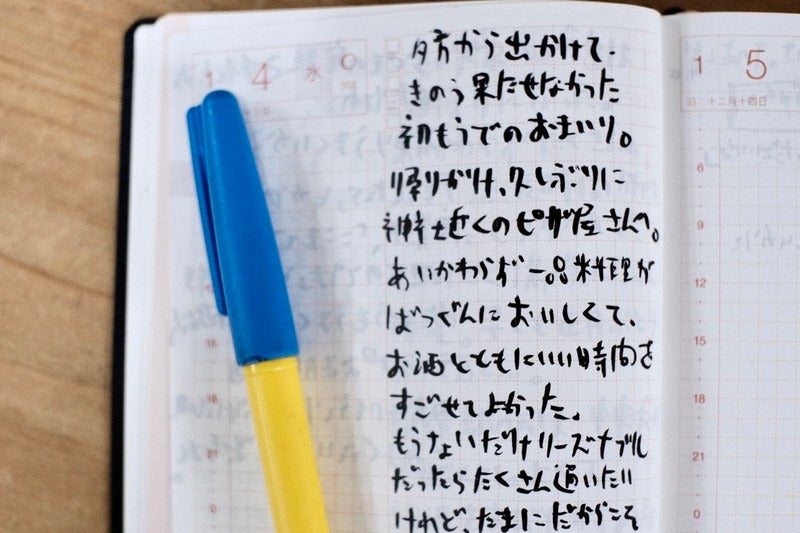 1 4 水
夕方から出かけて、
きのう果たせなかった
初もうでのおまいり。
帰りがけ、久しぶりに
神社近くのピザ屋さんへ。
あいかわらず一品料理が
ばつぐんにおいしくて、
お酒とともにいい時間を
すごせてよかった。
もうちょいだけリーズナブル
だったらたくさん通いたい
けれど、たまにだからこそ
1 5
旧:十二月十四日
6
9
12
15
18
21